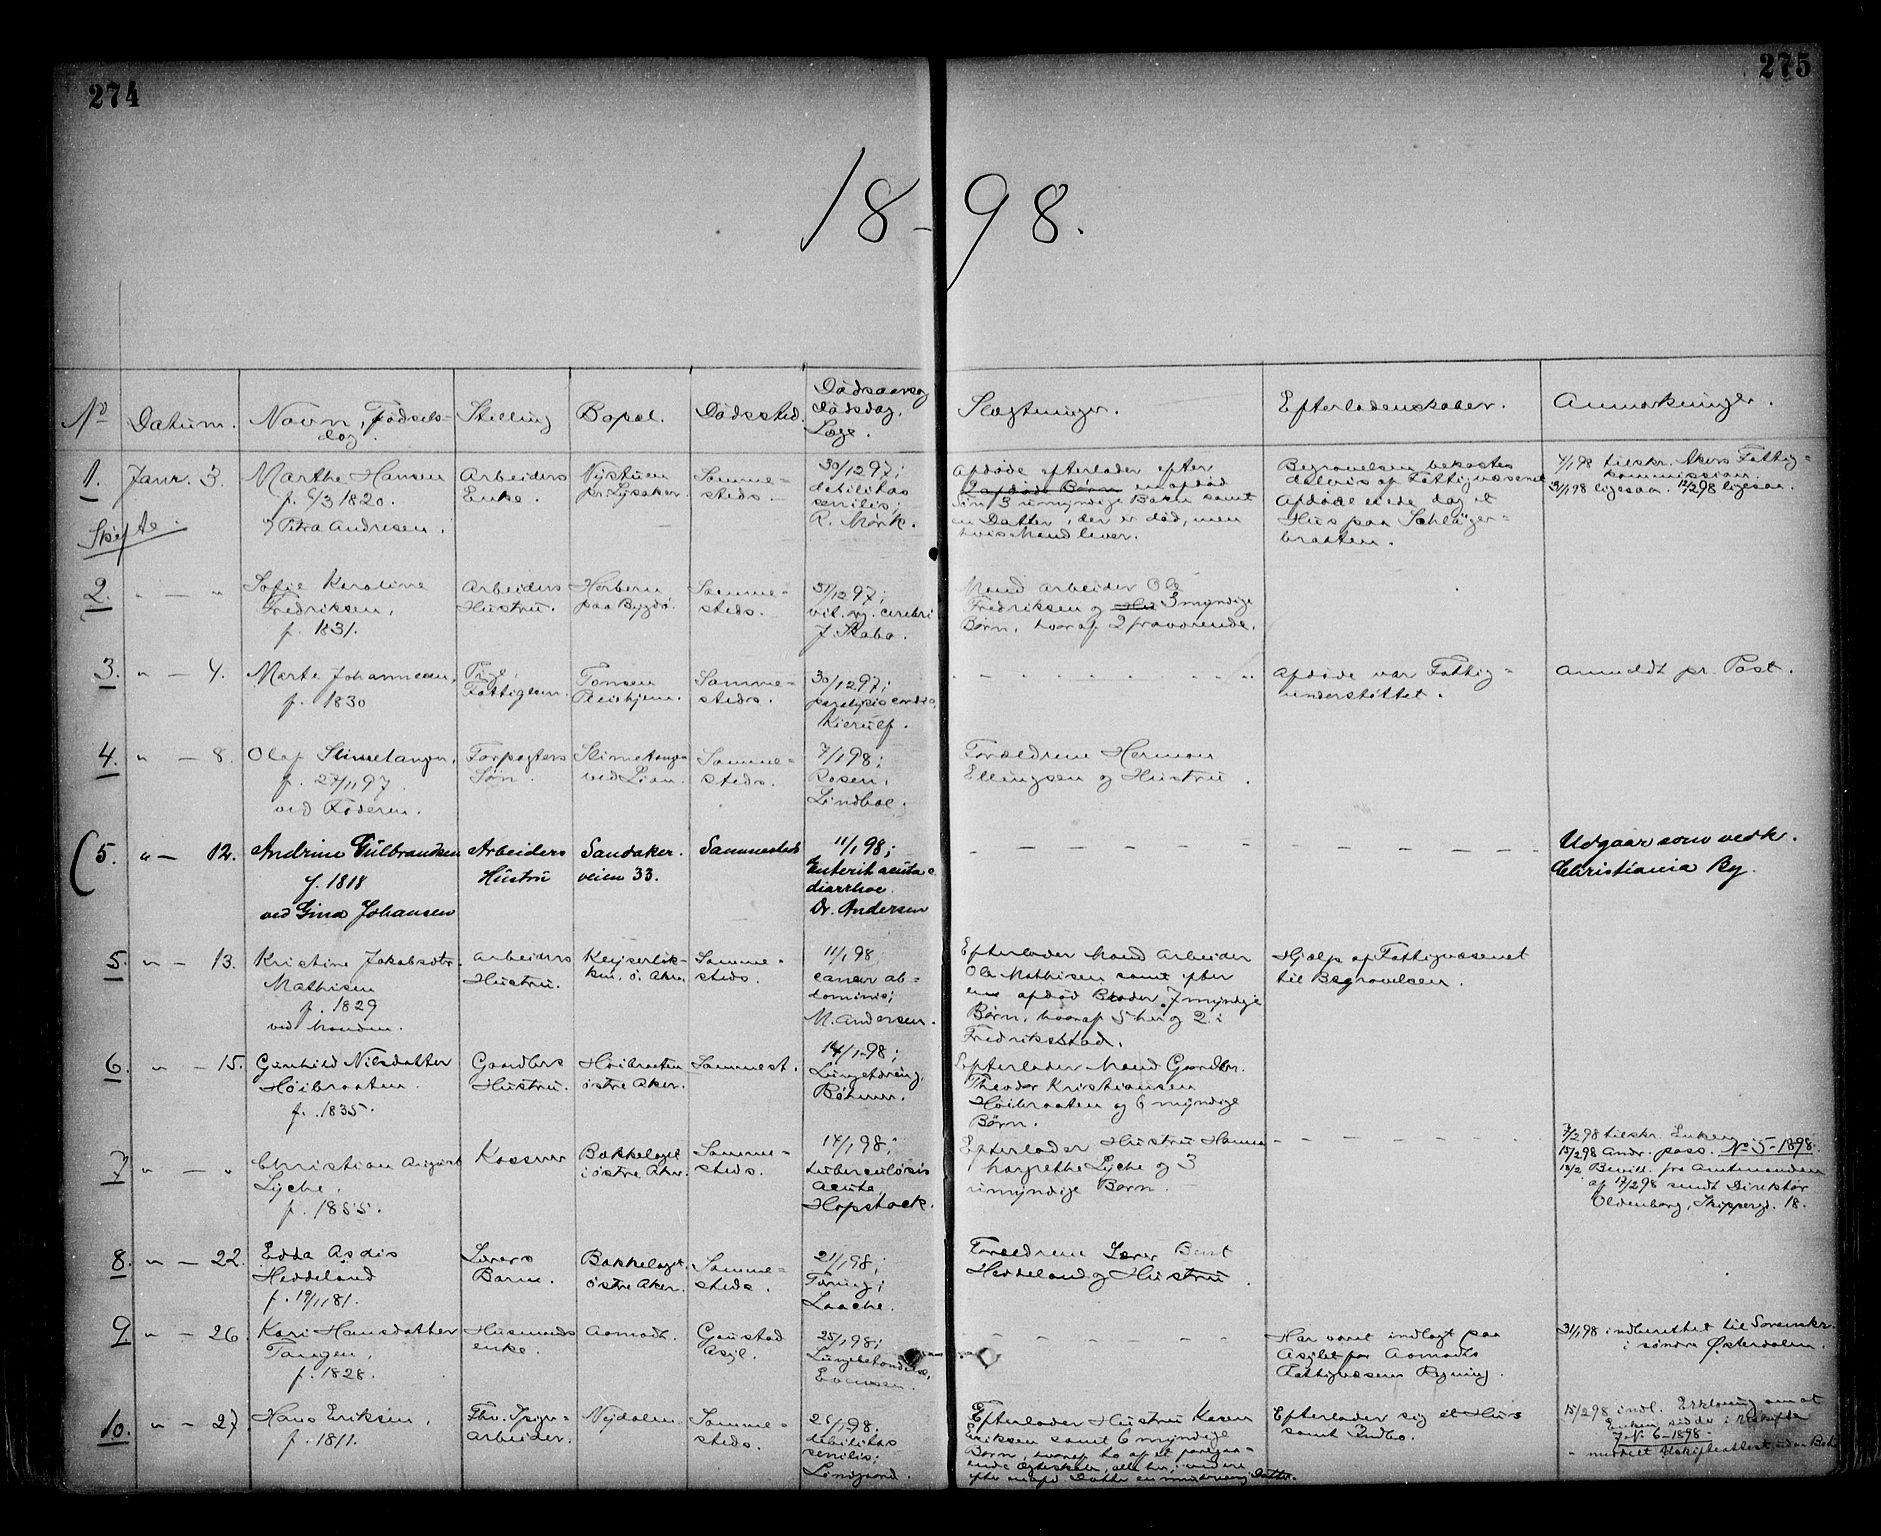 274
275
18-98.
No
Datum.
Navn, Fødsels-
dag.
Stilling
Bopæl.
Dødssted.
Dødsaarsag
Dødsdag.
Læge.
Slægtninger.
Efterladenskaber.
Anmærkninger.
1.
Skifte.
Janr. 3.
Marthe Hansen
f. 6/3 1820.
v/ Petra Andresen.
Arbeiders
Enke.
Nystuen
pr. Lysaker.
Samme-
steds.
30/12 97;
debilitas
senilis;
R. Mørk.
Afdøde efterlader efter
2 afdøde Børn en afdød
Søn 3 umyndige Børn samt
en Datter, der er død, men
hvis Mand lever.
Begravelsen bekostes
delvis af Fattigvæsenet
Afdøde eiede dog et
Hus paa Schläger-
braaten.
4/1 98 tilskr. Akers Fattig-
kommission.
31/1 98 ligesaa. 12/2 98 ligesaa.
2.
" - "
Sofie Karoline
Fredriksen,
f. 1831.
Arbeiders
Hustru.
Herbern
paa Bygdø.
Samme-
steds.
31/12 97;
vit. org. cerebri
J. Skabo.
Mand Arbeider Ole
Fredriksen og 3 myndige
Børn, hvoraf 2 fraværende.
3.
" - 4.
Marte Johannesen,
f. 1830
Pige,
Fattiglem.
Tonsen
Pleiehjem.
Samme-
steds.
30/12 97;
paralysis cordis,
Kierulf.
- - - - - - -
Afdøde var Fattig-
understøttet.
Anmeldt pr. Post.
4.
" - 8.
Olaf Slimetangen,
f. 27/11 97
ved Faderen.
Forpagters
Søn.
Slimetangen
ved Lian.
Samme-
steds.
7/1 98;
Rosen,
Lindboe.
Forældrene Herman
Ellingsen og Hustru.
(5.
" - 12.
Andrine Gulbrandsen
f. 1818
ved Gina Johansen
Arbeiders
Hustru
Sandaker-
veien 33.
Sammesteds
11/1 98;
Enterit acuta c.
diarrhoe.
Dr. Andersen
- - - - - - - - - - - -
Udgaar som vedk.
Christiania By.
5.
" - 13.
Kristine Jakobsdtr.
Mathisen
f. 1829
ved Manden.
Arbeiders
Hustru.
Keyserløk-
ken, ø. Aker.
Samme-
steds.
11/1 98
cancer ab-
dominis;
M. Andersen.
Efterlader Mand Arbeider
Ole Mathisen samt efter
en afdød Broder, 7 myndige
Børn, hvoraf 5 her og 2 i
Fredriksstad.
Hjælp af Fattigvæsenet
til Begravelsen.
6.
" - 15.
Gunhild Nilsdatter
Høibraaten.
f. 1835.
Gaardbrs
Hustru.
Høibraaten
østre Aker.
Sammest.
14/1-98;
Lungetæring,
Bøhmer.
Efterlader Mand Gaardbr.
Theodor Kristiansen
Høibraaten og 6 myndige
Børn.
7
" - "
Christian August
Lyche,
f. 1855.
Kasserer
Bækkelaget
i østre Aker.
Samme-
steds.
14/1 98;
tuberculosis
acuta,
Hopstock.
Efterlader Hustru Hanna
Margrethe Lyche og 3
umyndige Børn.
- - - - - - -
7/2 98 tilskr. Enken
15/2 98 Andr. pass. No 5-1898.
19/2 Bevill. fra Amtmanden
af 17/2 98 sendt Direktør
Oldenborg, Skippergd. 18.
8.
" - 22.
Edda Asdis
Heddeland
f. 19/11 81.
Lærers
Barn.
Bækkelaget.
østre Aker.
Samme-
steds.
21/1 98;
Tæring;
Laache.
Forældrene Lærer Bent
Heddeland og Hustru.
9.
" - 26.
Kari Hansdatter
Tangen,
f. 1828.
Husmands
enke.
Aamodt.
Gaustad
Asyl.
25/1 98;
Lungebetændelse,
Evensen.
- - - - - - -
Har været indlagt paa
Asylet for Aamodts
Fattigvæsens Regning.
31/1 98 indberettet til Sorenskr.
i søndre Østerdalen.
10.
" - 27.
Hans Eriksen,
f. 1811.
Fhv. Spigr-
arbeider.
Nydalen.
Samme-
steds.
26/1 98;
debilitas
senilis;
Lindgaard.
Efterlader Hustru Karen
Eriksen samt 6 myndige
Børn, hvoraf to af et foregaa-
ende Ægteskab, alle her; videre
efter en afd. Datter en mindreaarig Datter.
Efterlader sig et Hus
samt Indbo.
15/2 98 indl. Erklæring om at
Enken sidder i Uskifte
No 6-1898-
- meddelt Uskifteattest uden Bev.